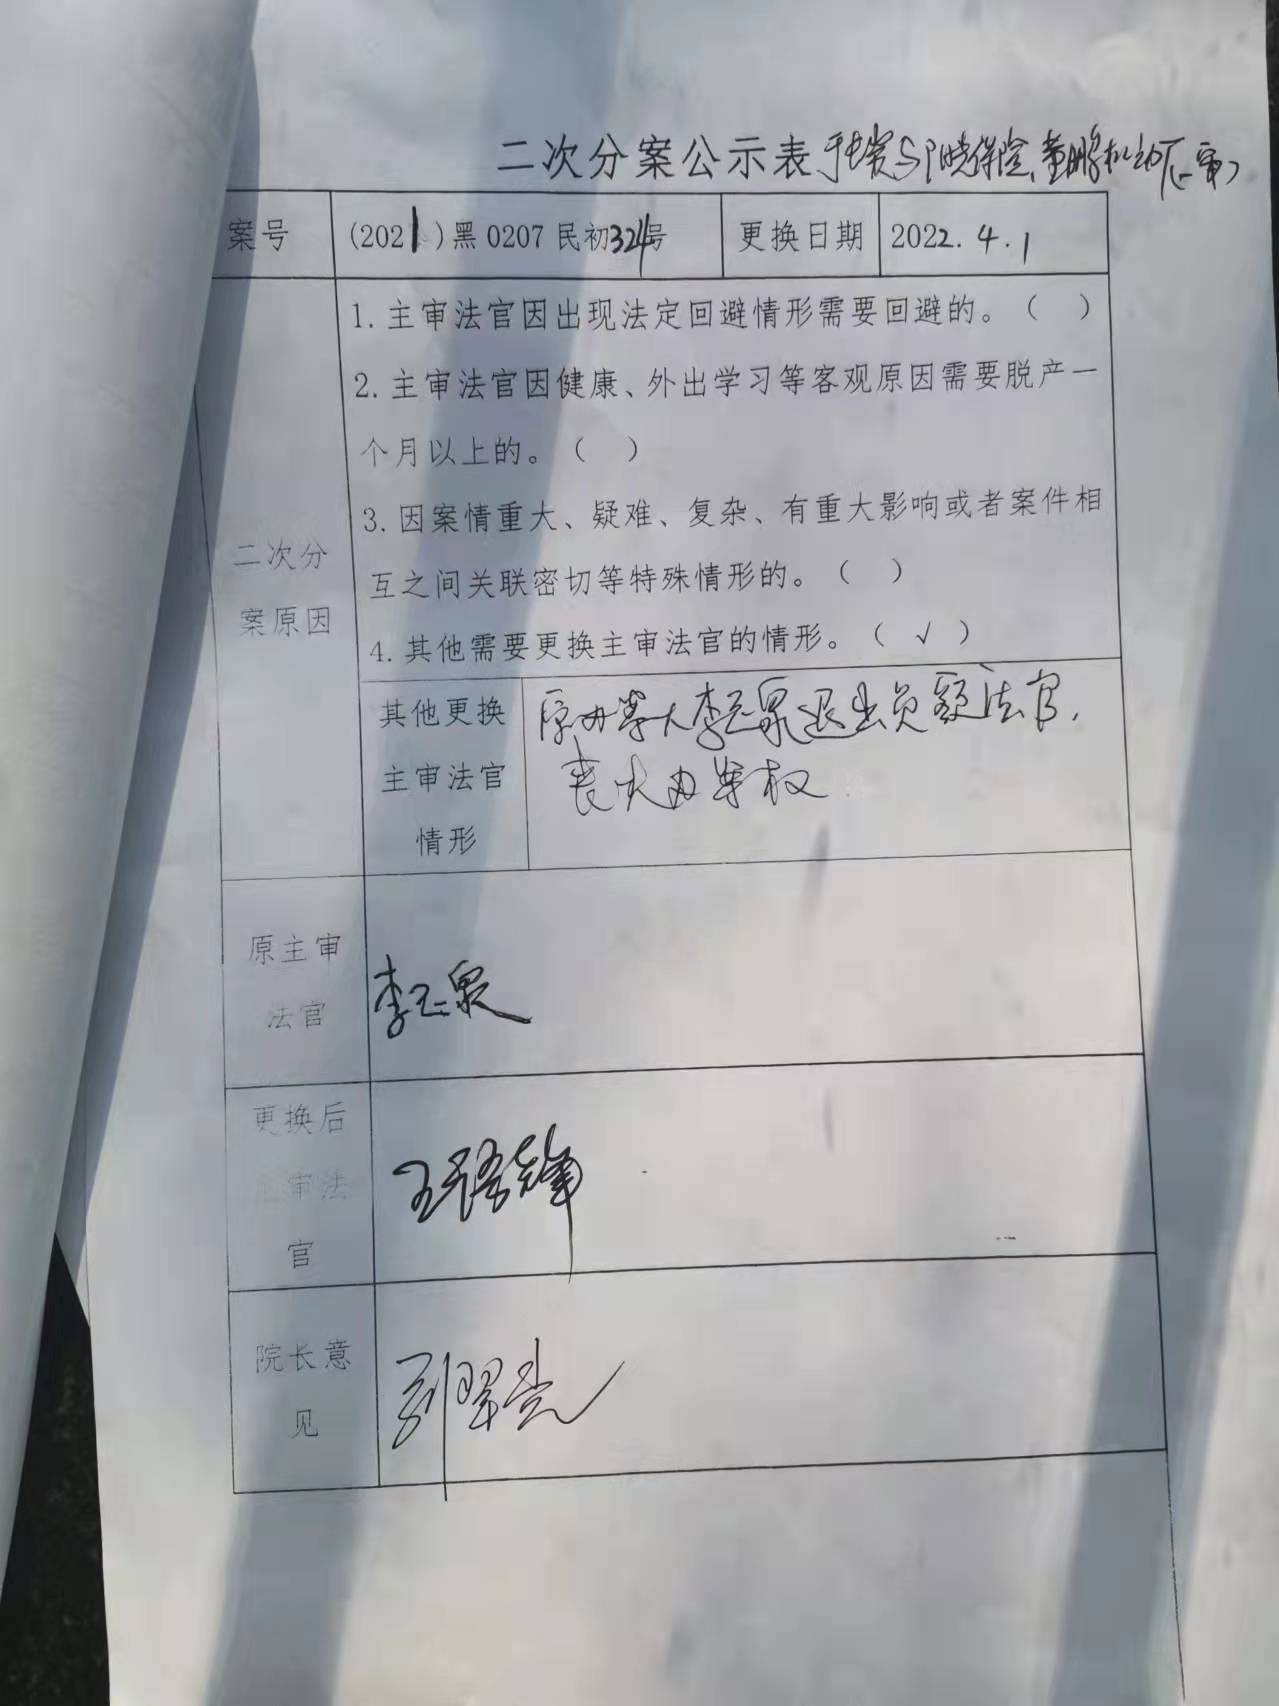 二次分案公示表
案号 (2021)黑0207民初324号 更换日期 2022.4.1
1.主审法官因出现法定回避情形需要回避的。（ ）
2.主审法官因健康、外出学习等客观原因需要脱产一
个月以上的。（ ）
3.因案情重大、疑难、复杂、有重大影响或者案件相
互之间关联密切等特殊情形的。（ ）
二次分
案原因
4.其他需要更换主审法官的情形。（ √ ）
其他更换
主审法官
情形
原办案人李玉泉退出员额法官,
丧失办案权
原主审
法官
李玉泉
更换后
审法
官
王
院长意
见